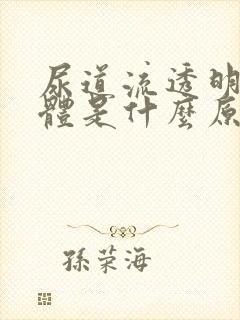 尿道流透明
體是什麼原
孫荣海